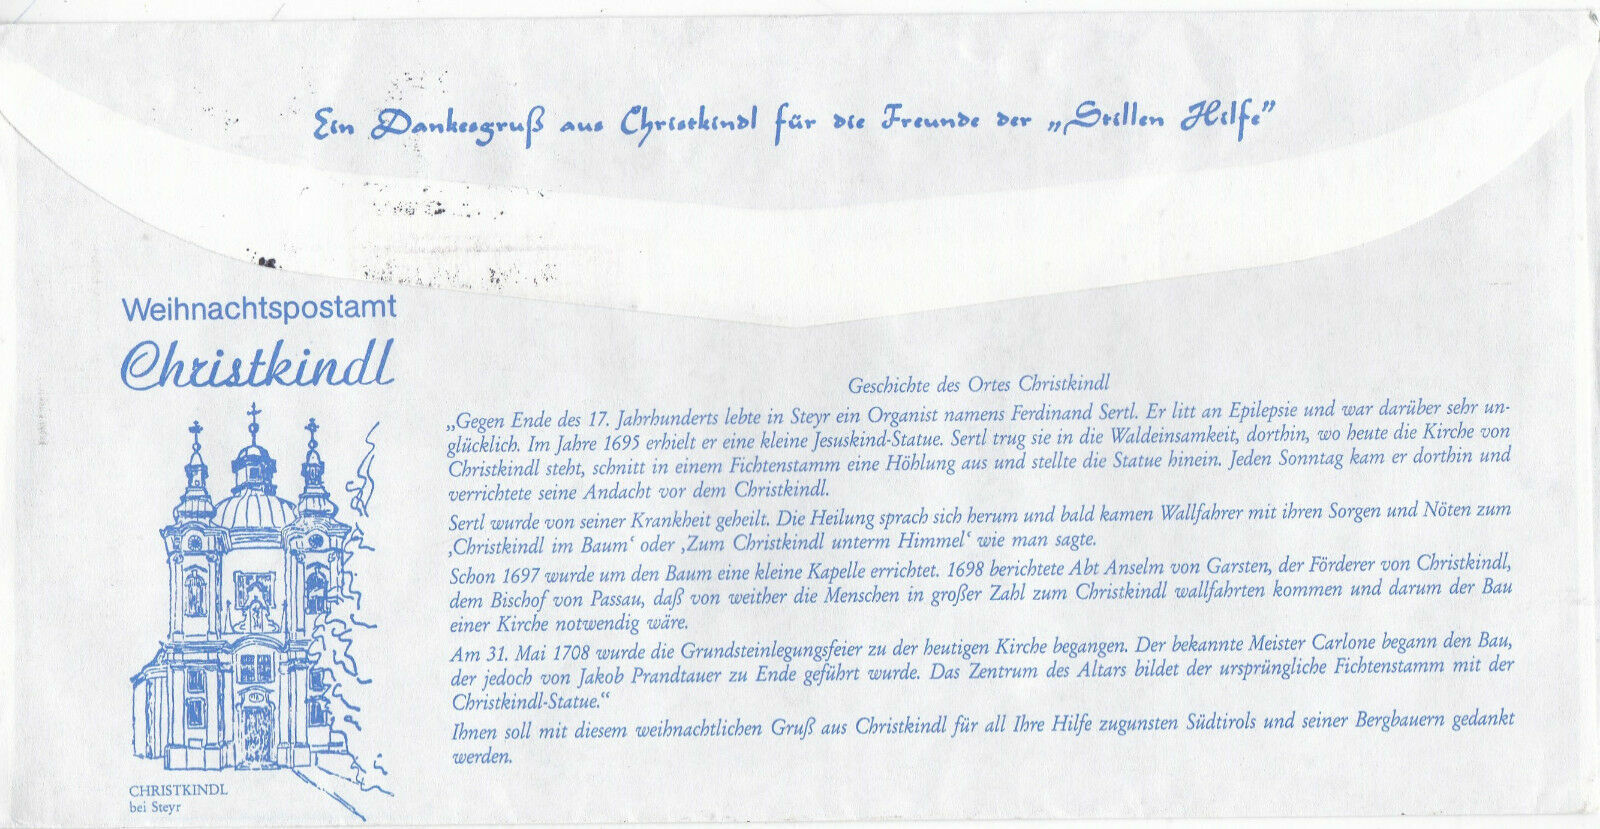 Ein Dankesgruß aus Christkindl für die Freunde der „Stillen Hilfe”
Weihnachtspostamt
Christkindl
CHRISTKINDL
bei Steyr
Geschichte des Ortes Christkindl
„Gegen Ende des 17. Jahrhunderts lebte in Steyr ein Organist namens Ferdinand Sertl. Er litt an Epilepsie und war darüber sehr un-
glücklich. Im Jahre 1695 erhielt er eine kleine Jesuskind-Statue. Sertl trug sie in die Waldeinsamkeit, dorthin, wo heute die Kirche von
Christkindl steht, schnitt in einem Fichtenstamm eine Höhlung aus und stellte die Statue hinein. Jeden Sonntag kam er dorthin und
verrichtete seine Andacht vor dem Christkindl.
Sertl wurde von seiner Krankheit geheilt. Die Heilung sprach sich herum und bald kamen Wallfahrer mit ihren Sorgen und Nöten zum
‚Christkindl im Baum‘ oder ‚Zum Christkindl unterm Himmel‘ wie man sagte.
Schon 1697 wurde um den Baum eine kleine Kapelle errichtet. 1698 berichtete Abt Anselm von Garsten, der Förderer von Christkindl,
dem Bischof von Passau, daß von weither die Menschen in großer Zahl zum Christkindl wallfahrten kommen und darum der Bau
einer Kirche notwendig wäre.
Am 31. Mai 1708 wurde die Grundsteinlegungsfeier zu der heutigen Kirche begangen. Der bekannte Meister Carlone begann den Bau,
der jedoch von Jakob Prandtauer zu Ende geführt wurde. Das Zentrum des Altars bildet der ursprüngliche Fichtenstamm mit der
Christkindl-Statue.“
Ihnen soll mit diesem weihnachtlichen Gruß aus Christkindl für all Ihre Hilfe zugunsten Südtirols und seiner Bergbauern gedankt
werden.